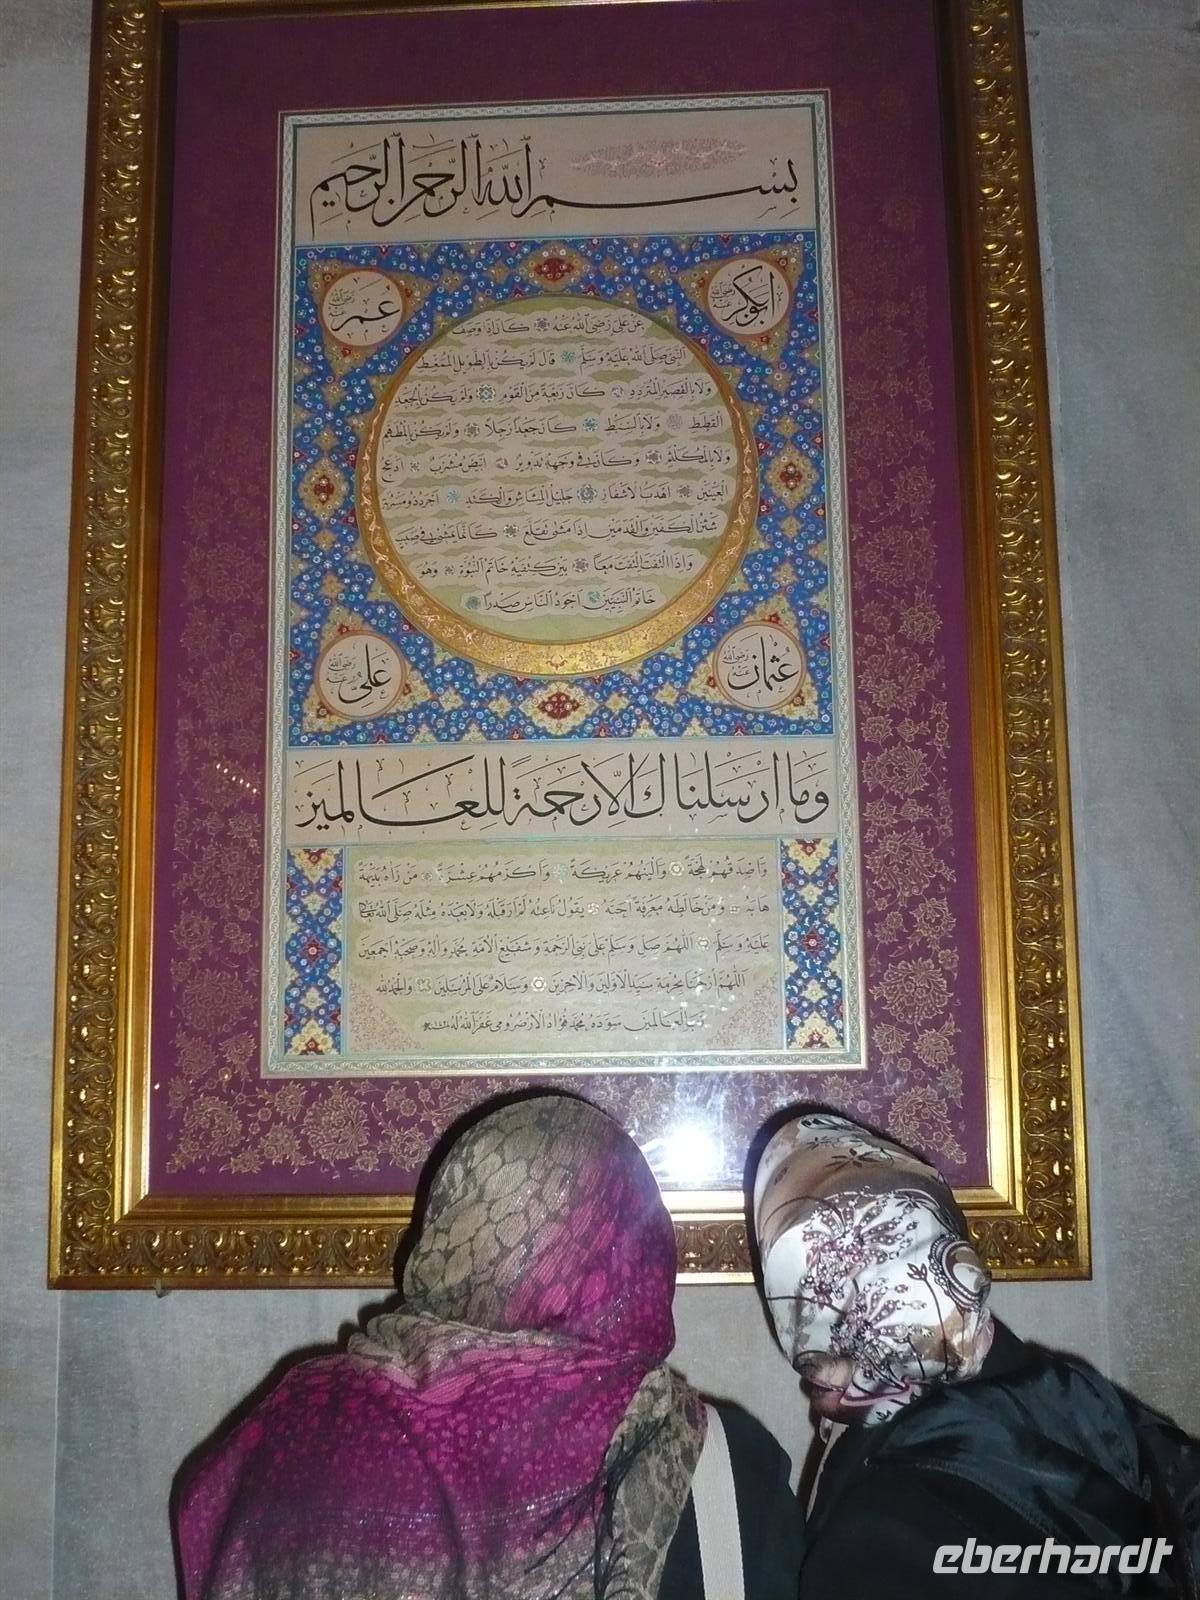 بِسْمِ اللّٰهِ الرَّحْمٰنِ الرَّحِيمِ
ابوبكر رضى الله عنه
عُمَر رضى الله عنه
عَنْ عَلِىٍّ رَضِىَ اللّٰهُ عَنْهُ كَانَ اِذَا وَصَفَ
النَّبِىَّ صَلَّى اللّٰهُ عَلَيْهِ وَسَلَّمَ قَالَ لَمْ يَكُنْ بِالطَّوِيلِ الْمُمَّغِطِ
وَلَا بِالْقَصِيرِ الْمُتَرَدِّدِ كَانَ رَبْعَةً مِنَ الْقَوْمِ وَلَمْ يَكُنْ بِالْجَعْدِ
الْقَطَطِ وَلَا بِالسَّبِطِ كَانَ جَعْدًا رَجِلًا وَلَمْ يَكُنْ بِالْمُطَهَّمِ
وَلَا بِالْمُكَلْثَمِ وَكَانَ فِى وَجْهِهِ تَدْوِيرٌ اَبْيَضُ مُشْرَبٌ اَدْعَجُ
الْعَيْنَيْنِ اَهْدَبُ الْاَشْفَارِ جَلِيلُ الْمُشَاشِ وَالْكَتَدِ اَجْرَدُ ذُو مَسْرُبَةٍ
شَثْنُ الْكَفَّيْنِ وَالْقَدَمَيْنِ اِذَا مَشَى تَقَلَّعَ كَاَنَّمَا يَمْشِى فِى صَبَبٍ
وَاِذَا الْتَفَتَ الْتَفَتَ مَعًا بَيْنَ كَتِفَيْهِ خَاتَمُ النُّبُوَّةِ وَهُوَ
خَاتَمُ النَّبِيِّينَ اَجْوَدُ النَّاسِ صَدْرًا
عُثْمَان رضى الله عنه
عَلِىّ رضى الله عنه
وَمَا اَرْسَلْنَاكَ اِلَّا رَحْمَةً لِلْعَالَمِينَ
وَاَصْدَقُهُمْ لَهْجَةً وَاَلْيَنُهُمْ عَرِيكَةً وَاَكْرَمُهُمْ عِشْرَةً مَنْ رَآهُ بَدِيهَةً
هَابَهُ وَمَنْ خَالَطَهُ مَعْرِفَةً اَحَبَّهُ يَقُولُ نَاعِتُهُ لَمْ اَرَ قَبْلَهُ وَلَا بَعْدَهُ مِثْلَهُ صَلَّى اللّٰهُ تَعَالَى
عَلَيْهِ وَسَلَّمَ اَللّٰهُمَّ صَلِّ وَسَلِّمْ عَلَى نَبِىِّ الرَّحْمَةِ وَشَفِيعِ الْاُمَّةِ مُحَمَّدٍ وَآلِهِ وَصَحْبِهِ اَجْمَعِينَ
اَللّٰهُمَّ ارْحَمْنَا بِحُرْمَةِ سَيِّدِ الْاَوَّلِينَ وَالْآخِرِينَ وَسَلَامٌ عَلَى الْمُرْسَلِينَ وَالْحَمْدُ لِلّٰهِ
رَبِّ الْعَالَمِينَ سَوَّدَهُ مُحَمَّد فُؤَاد الْاَرْضُرُومِى غَفَرَ اللّٰهُ لَهُ
eberhardt